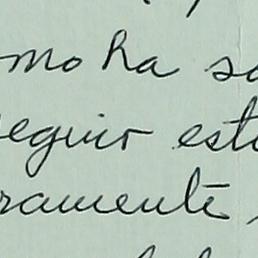 mo ha s
eguir est
ramente